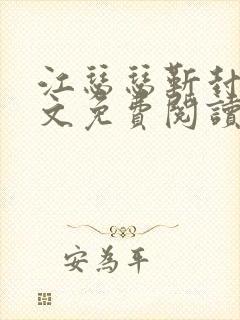 江瑟瑟靳封
文免費閱讀
安為平